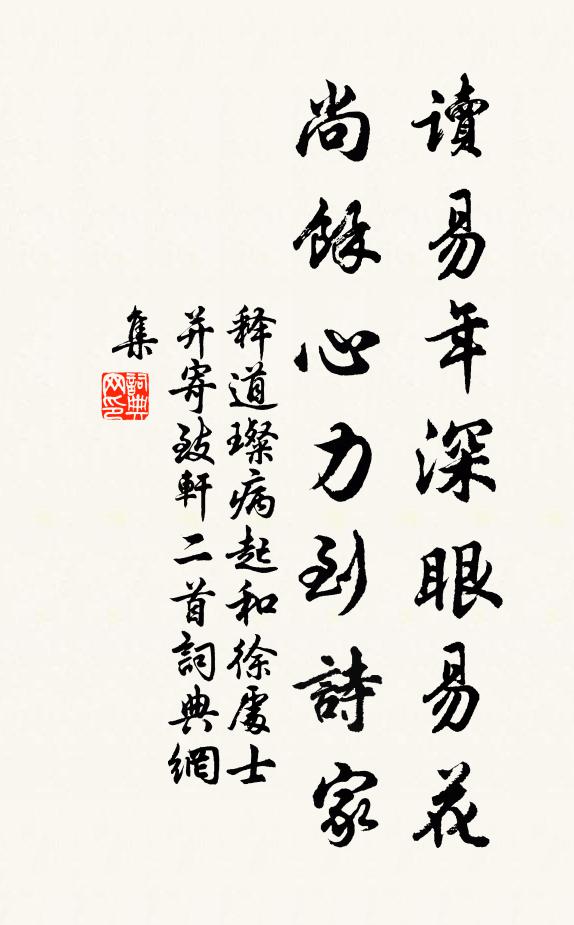 讀易年深眼易花
尚餘心力到詩家
释道璨病起和徐處士
并寄致軒二首詞典網
集
詞典
网印